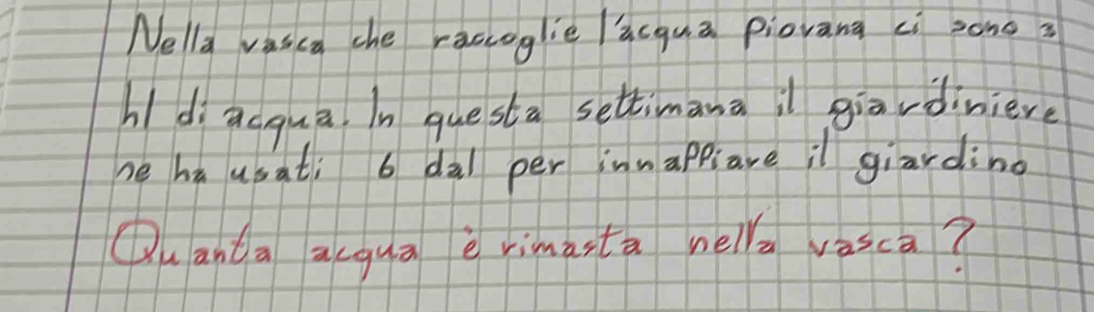 Nella vasca che raccoglie l'acqua piovana ci sono 3
hl di acqua. In questa settimana il giardiniere
ne ha usati 6 dal per innappiare il giardino
Quanta acqua è rimasta nella vasca?